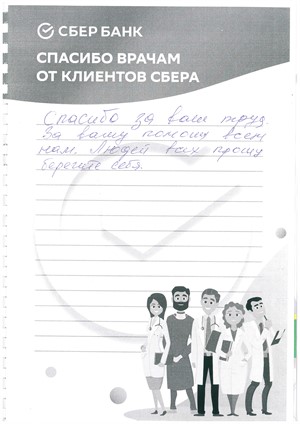 СБЕР БАНК
СПАСИБО ВРАЧАМ
ОТ КЛИЕНТОВ СБЕРА
Спасибо за ваш труд.
За вашу помощь всем
нам. Людей всех прошу
берегите себя.